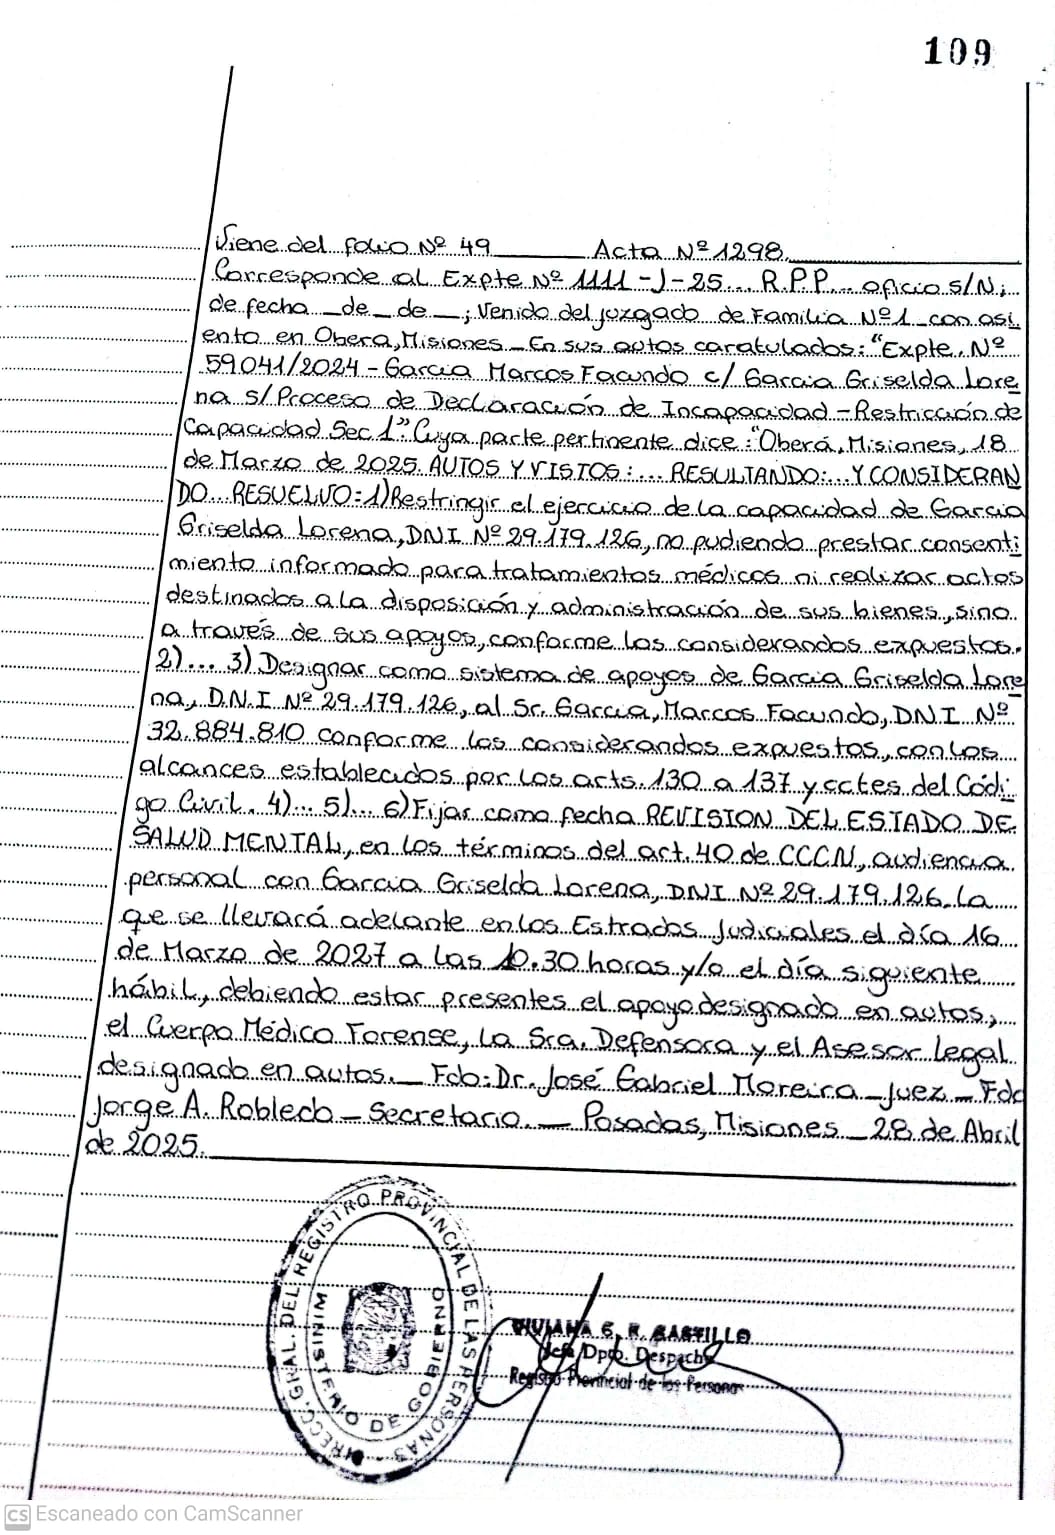 109
Viene del folio Nº 49 Acta Nº 1298.
Corresponde al Expte Nº 1111-J-25... R.P.P... oficio s/N;
de fecha _de_ de _; Venido del Juzgado de Familia Nº1 con asi
ento en Obera, Misiones_ En sus autos caratulados: "Expte. Nº
59041/2024 - Garcia Marcos Facundo c/ Garcia Griselda Lore
na s/ Proceso de Declaración de Incapacidad - Restricción de
Capacidad Sec 1". Cuya parte pertinente dice: "Oberá, Misiones, 18
de Marzo de 2025. AUTOS Y VISTOS:... RESULTANDO:... Y CONSIDERAN
DO... RESUELVO: 1) Restringir el ejercicio de la capacidad de Garcia
Griselda Lorena, DNI Nº 29.179.126, no pudiendo prestar consenti
miento informado para tratamientos médicos ni realizar actos
destinados a la disposición y administración de sus bienes, sino
a través de sus apoyos, conforme los considerandos expuestos.
2)... 3) Designar como sistema de apoyos de Garcia Griselda Lore
na, D.N.I Nº 29.179.126, al Sr. Garcia, Marcos Facundo, DNI Nº
32.884.810 conforme los considerandos expuestos, con los
alcances establecidos por los arts. 130 a 137 y cctes del Códi
go Civil. 4)... 5)... 6) Fijar como fecha REVISION DEL ESTADO DE
SALUD MENTAL, en los términos del art. 40 de CCCN, audiencia
personal con Garcia Griselda Lorena, DNI Nº 29.179.126. la
que se llevará adelante en los Estrados Judiciales el día 16
de Marzo de 2027 a las 10.30 horas y/o el día siguiente
hábil, debiendo estar presentes el apoyo designado en autos,
el Cuerpo Médico Forense, La Sra. Defensora y el Asesor Legal
designado en autos._ Fdo: Dr. José Gabriel Moreira_ Juez_ Fdo
Jorge A. Robledo_ Secretario._ Posadas, Misiones_ 28 de Abril
de 2025.
DIRECC. GRAL. DEL REGISTRO PROVINCIAL DE LAS PERSONAS
MINISTERIO DE GOBIERNO
VIVIANA G. R. CASTILLO
Jefa Dpto. Despacho
Registro Provincial de las Personas
CS Escaneado con CamScanner